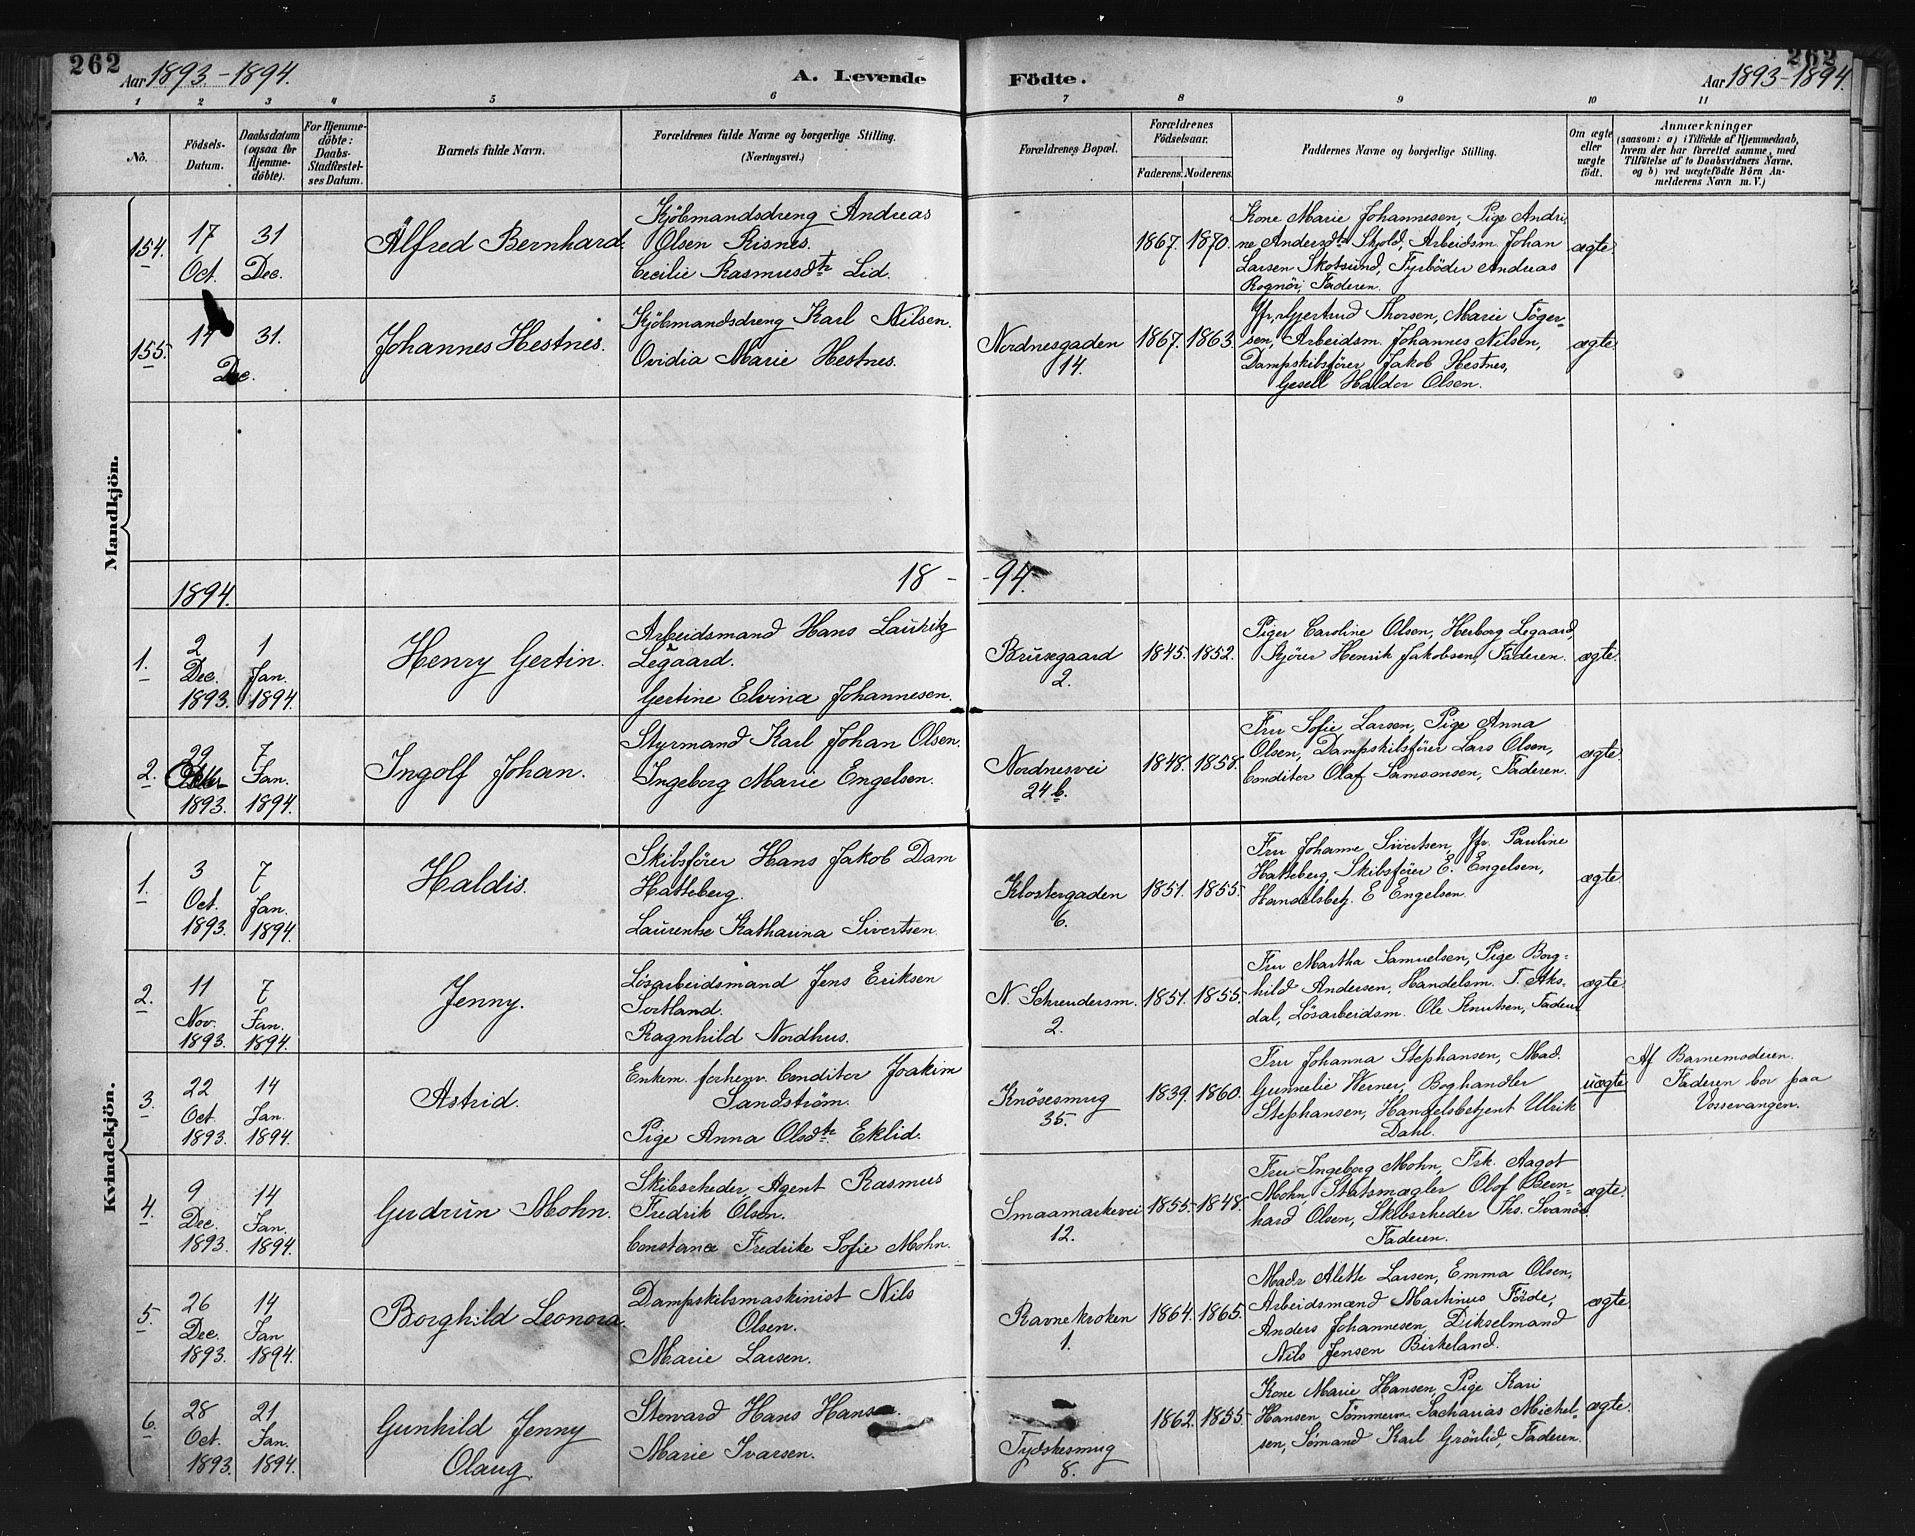 262
Aar 1893-1894.
A. Levende
Födte.
262
Aar 1893-1894.
1 2 3 4 5 6 7 8 9 10 11
No.
Födsels-
Datum.
Daabsdatum
(ogsaa for
Hjemme-
döbte).
For Hjemme-
döbte:
Daabs-
Stadfæstel-
ses Datum.
Barnets fulde Navn.
Forældrenes fulde Navne og borgerlige Stilling.
(Næringsvei.)
Forældrenes Bopæl.
Forældrenes
Födselsaar.
Faderens. Moderens.
Faddernes Navne og borgerlige Stilling.
Om ægte
eller
uægte
födt.
Anmærkninger
(saasom: a) i Tilfælde af Hjemmedaab,
hvem der har forrettet samme, med
Tilföielse af to Daabsvidners Navne.
og b) ved uægtefödte Börn An-
melderens Navn m. V.)
Mandkjön.
154.
17
Oct.
31
Dec.
Alfred Bernhard.
Kjöbmandsdreng Andreas
Olsen Risnes.
Cecilie Rasmusdtr Lid.
1867. 1870.
Kone Marie Johannesen, Pige Andri-
ne Andersdtr Skjold, Arbeidsm. Johan
Larsen Skotsund, Fyrböder Andreas
Rognöi, Faderen.
ægte.
155.
14
Dec.
31.
Johannes Hestnes.
Kjöbmandsdreng Karl Nilsen.
Ovidia Marie Hestnes.
Nordnesgaden
14.
1867. 1863.
Jfr. Gjertrud Thorsen, Marie Töger-
sen, Arbeidsm. Johannes Nilsen,
Dampskibsförer Jakob Hestnes,
Gesell Haldor Olsen.
ægte.
1894.
18 - - 94.
1.
2
Dec.
1893.
1
Jan.
1894.
Henry Gertin.
Arbeidsmand Hans Lauritz
Legaard.
Gertine Elvina Johannesen.
Brusegaard
2.
1845. 1852.
Piger Caroline Olsen, Herborg Legaard,
Kjörer Henrik Jakobsen, Faderen.
ægte.
2.
29
1893.
7
Jan.
1894.
Ingolf Johan.
Styrmand Karl Johan Olsen.
Ingeborg Marie Engelsen.
Nordnesvei
24 b.
1848. 1858.
Fru Sofie Larsen, Pige Anna
Olsen, Dampskibsförer Lars Olsen,
Conditor Olaf Samsonsen, Faderen.
ægte.
Kvindekjön.
1.
3
Oct.
1893.
7
Jan.
1894.
Haldis.
Skibsförer Hans Jakob Dam
Hatteberg.
Laurentse Katharina Sivertsen.
Klostergaden
6.
1851. 1855.
Fru Johanne Sivertsen, Jfr. Pauline
Hatteberg, Skibsförer E. Engelsen,
Handelsbetj. E Engelsen.
ægte.
2.
11
Nov.
1893.
7
Jan.
1894.
Jenny.
Lösarbeidsmand Jens Eriksen
Sortland.
Ragnhild Nordhus.
N. Schreudersm.
2.
1851. 1855.
Fru Martha Samuelsen, Pige Borg-
hild Andersen, Handelsm. T. Aks-
dal, Lösarbeidsm. Ole Knutsen, Faderen
ægte.
3.
22
Oct.
1893.
14
Jan.
1894.
Astrid.
Enkem. forhenv. Conditor Joakim
Sandström.
Pige Anna Olsdtr Eklid.
Knösesmug
35.
1839. 1860.
Fru Johanna Stephansen, Mad.
Gunnelie Werner, Boghandler
Stephansen, Handelsbetjent Ulrik
Dahl.
uægte
Af Barnemoderen.
Faderen bor paa
Vossevangen.
4.
9
Dec.
1893.
14
Jan.
1894.
Gudrun Mohn.
Skibsrheder, Agent Rasmus
Fredrik Olsen.
Constance Fredrike Sofie Mohn.
Smaamarkevei
12.
1855. 1848.
Fru Ingeborg Mohn, Frk. Aagot
Mohn, Statsmægler Olof Bern-
hard Olsen, Skibsrheder Ths. Svanöe
Faderen.
ægte.
5.
26
Dec.
1893.
14
Jan
1894.
Borghild Leonora.
Dampskibsmaskinist Nils
Olsen.
Marie Larsen.
Ravnekroken
1.
1864. 1865.
Madr Alette Larsen, Emma Olsen,
Arbeidsmænd Martinus Förde,
Anders Johannesen, Dikselmand
Nils Jensen Birkeland.
ægte.
6.
28
Oct.
1893.
21
Jan.
1894.
Gunhild Jenny
Olaug.
Steward Hans Hansen
Marie Ivarsen.
Tydskesmug
8.
1862. 1855.
Kone Marie Hansen, Pige Kari
Hansen, Tömmerm. Sacharias Michel-
sen, Sömand Karl Grönlid, Faderen.
ægte.